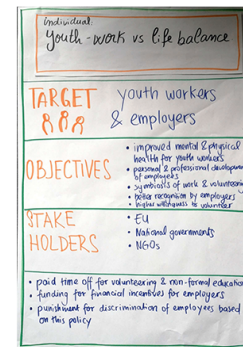 Individual:
Youth-work vs life balance
TARGET
youth workers
& employers
OBJECTIVES
• improved mental & physical
health for youth workers
• personal & professional development
of employees
• symbiosis of work & volunteering
• better recognition by employers
• higher willingness to volunteer
STAKE
HOLDERS
• EU
• National governments
• NGOs
• paid time off for volunteering & non-formal education
• funding for financial incentives for employers
• punishment for discrimination of employees based
on this policy